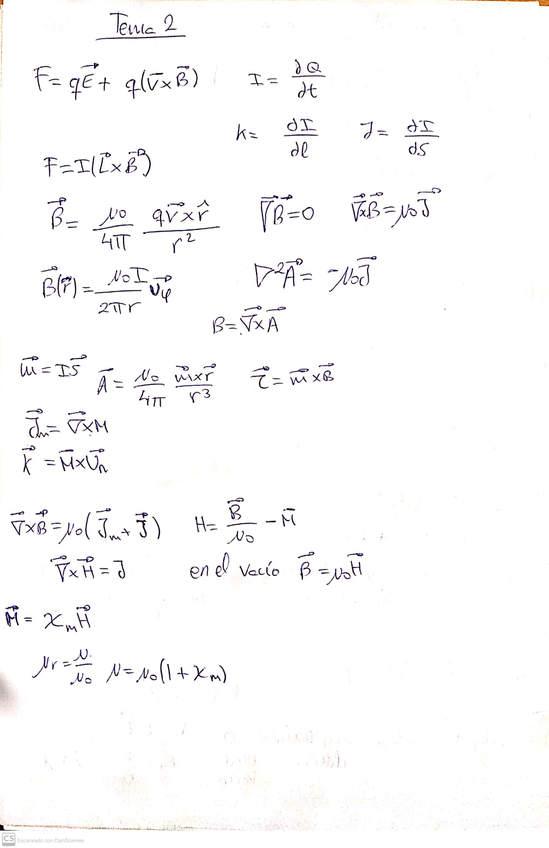 Tema 2
F = qE⃗ + q(v⃗ x B⃗) I = ∂Q/∂t
K = ∂I/∂l J = ∂I/∂s
F = I(L⃗ x B⃗)
B⃗ = μ₀/4π qv⃗ x r̂/r² ∇⃗B⃗ = 0 ∇⃗xB⃗ = μ₀J⃗
B⃗(r⃗) = μ₀I/2πr u⃗φ ∇²A⃗ = -μ₀J⃗
B = ∇⃗xA⃗
m⃗ = IS⃗ A⃗ = μ₀/4π m⃗xr⃗/r³ τ⃗ = m⃗xB⃗
J⃗m = ∇⃗xM
K⃗ = M⃗xU⃗n
∇⃗xB⃗ = μ₀(J⃗m + J⃗) H = B⃗/μ₀ - M⃗
∇⃗xH⃗ = J en el vacío B⃗ = μ₀H⃗
M⃗ = χmH⃗
μr = μ/μ₀ μ = μ₀(1 + χm)
CS Escaneado con CamScanner